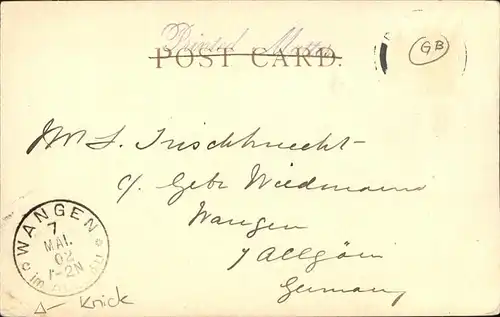 Printed Matter
POST CARD.
GB
Mr L. Frischknecht
c/o Gebr Wiedmann
Wangen
/ Allgäu
Germany
WANGEN
7
MAI.
02
1-2N
im
Knick